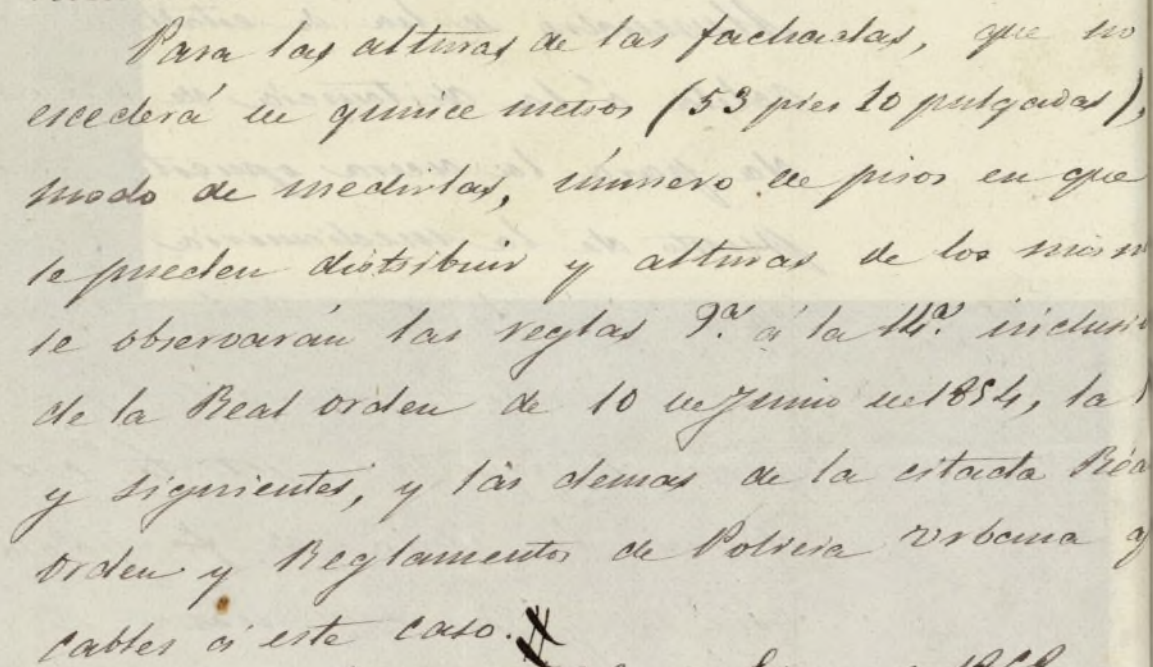 Para las alturas de las fachadas, que no
escederá de quince metros (53 pies 10 pulgadas),
modo de medirlas, número de pisos en que
se pueden distribuir y alturas de los mism
se observarán las reglas 9ª. á la 14ª. inclusi
de la Real orden de 10 de Junio de 1854, la
y siguientes, y las demas de la citada Rea
orden y Reglamentos de Policia Urbana
cables á este caso.